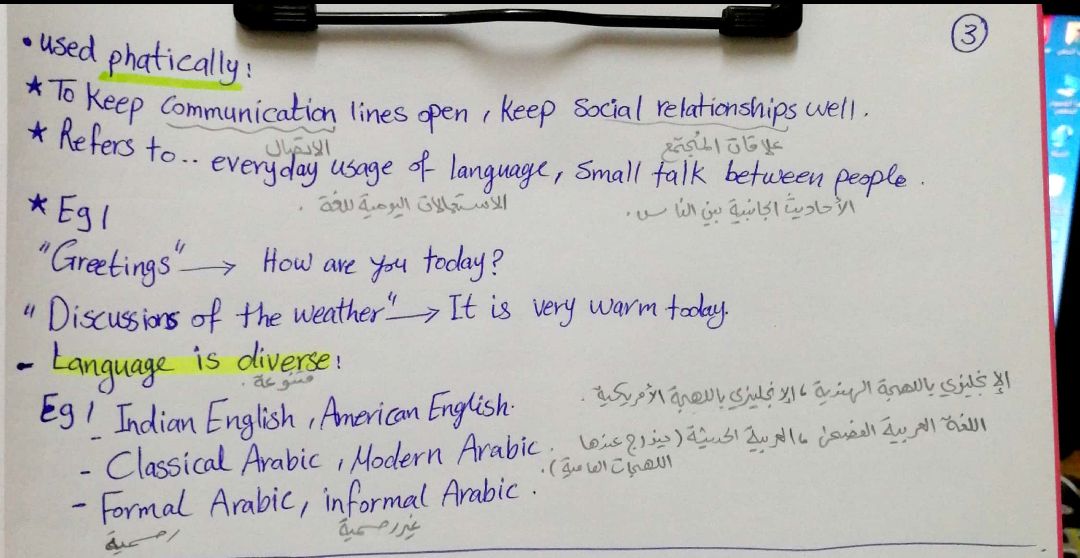 3
• used phatically:
* To keep communication lines open, keep social relationships well.
الاتصال علاقات المجتمع
* Refers to.. everyday usage of language, small talk between people.
الاستعمالات اليومية للغة. الأحاديث الجانبية بين الناس.
* Eg /
"Greetings" → How are you today?
"Discussions of the weather" → It is very warm today.
- Language is diverse:
متنوعة.
Eg / - Indian English, American English.
الإنجليزي باللهجة الهندية، الإنجليزي باللهجة الأمريكية.
- Classical Arabic, Modern Arabic.
اللغة العربية الفصحى، العربية الحديثة (يندرج عندها
اللهجات العامية).
- Formal Arabic, informal Arabic.
رسمية غير رسمية